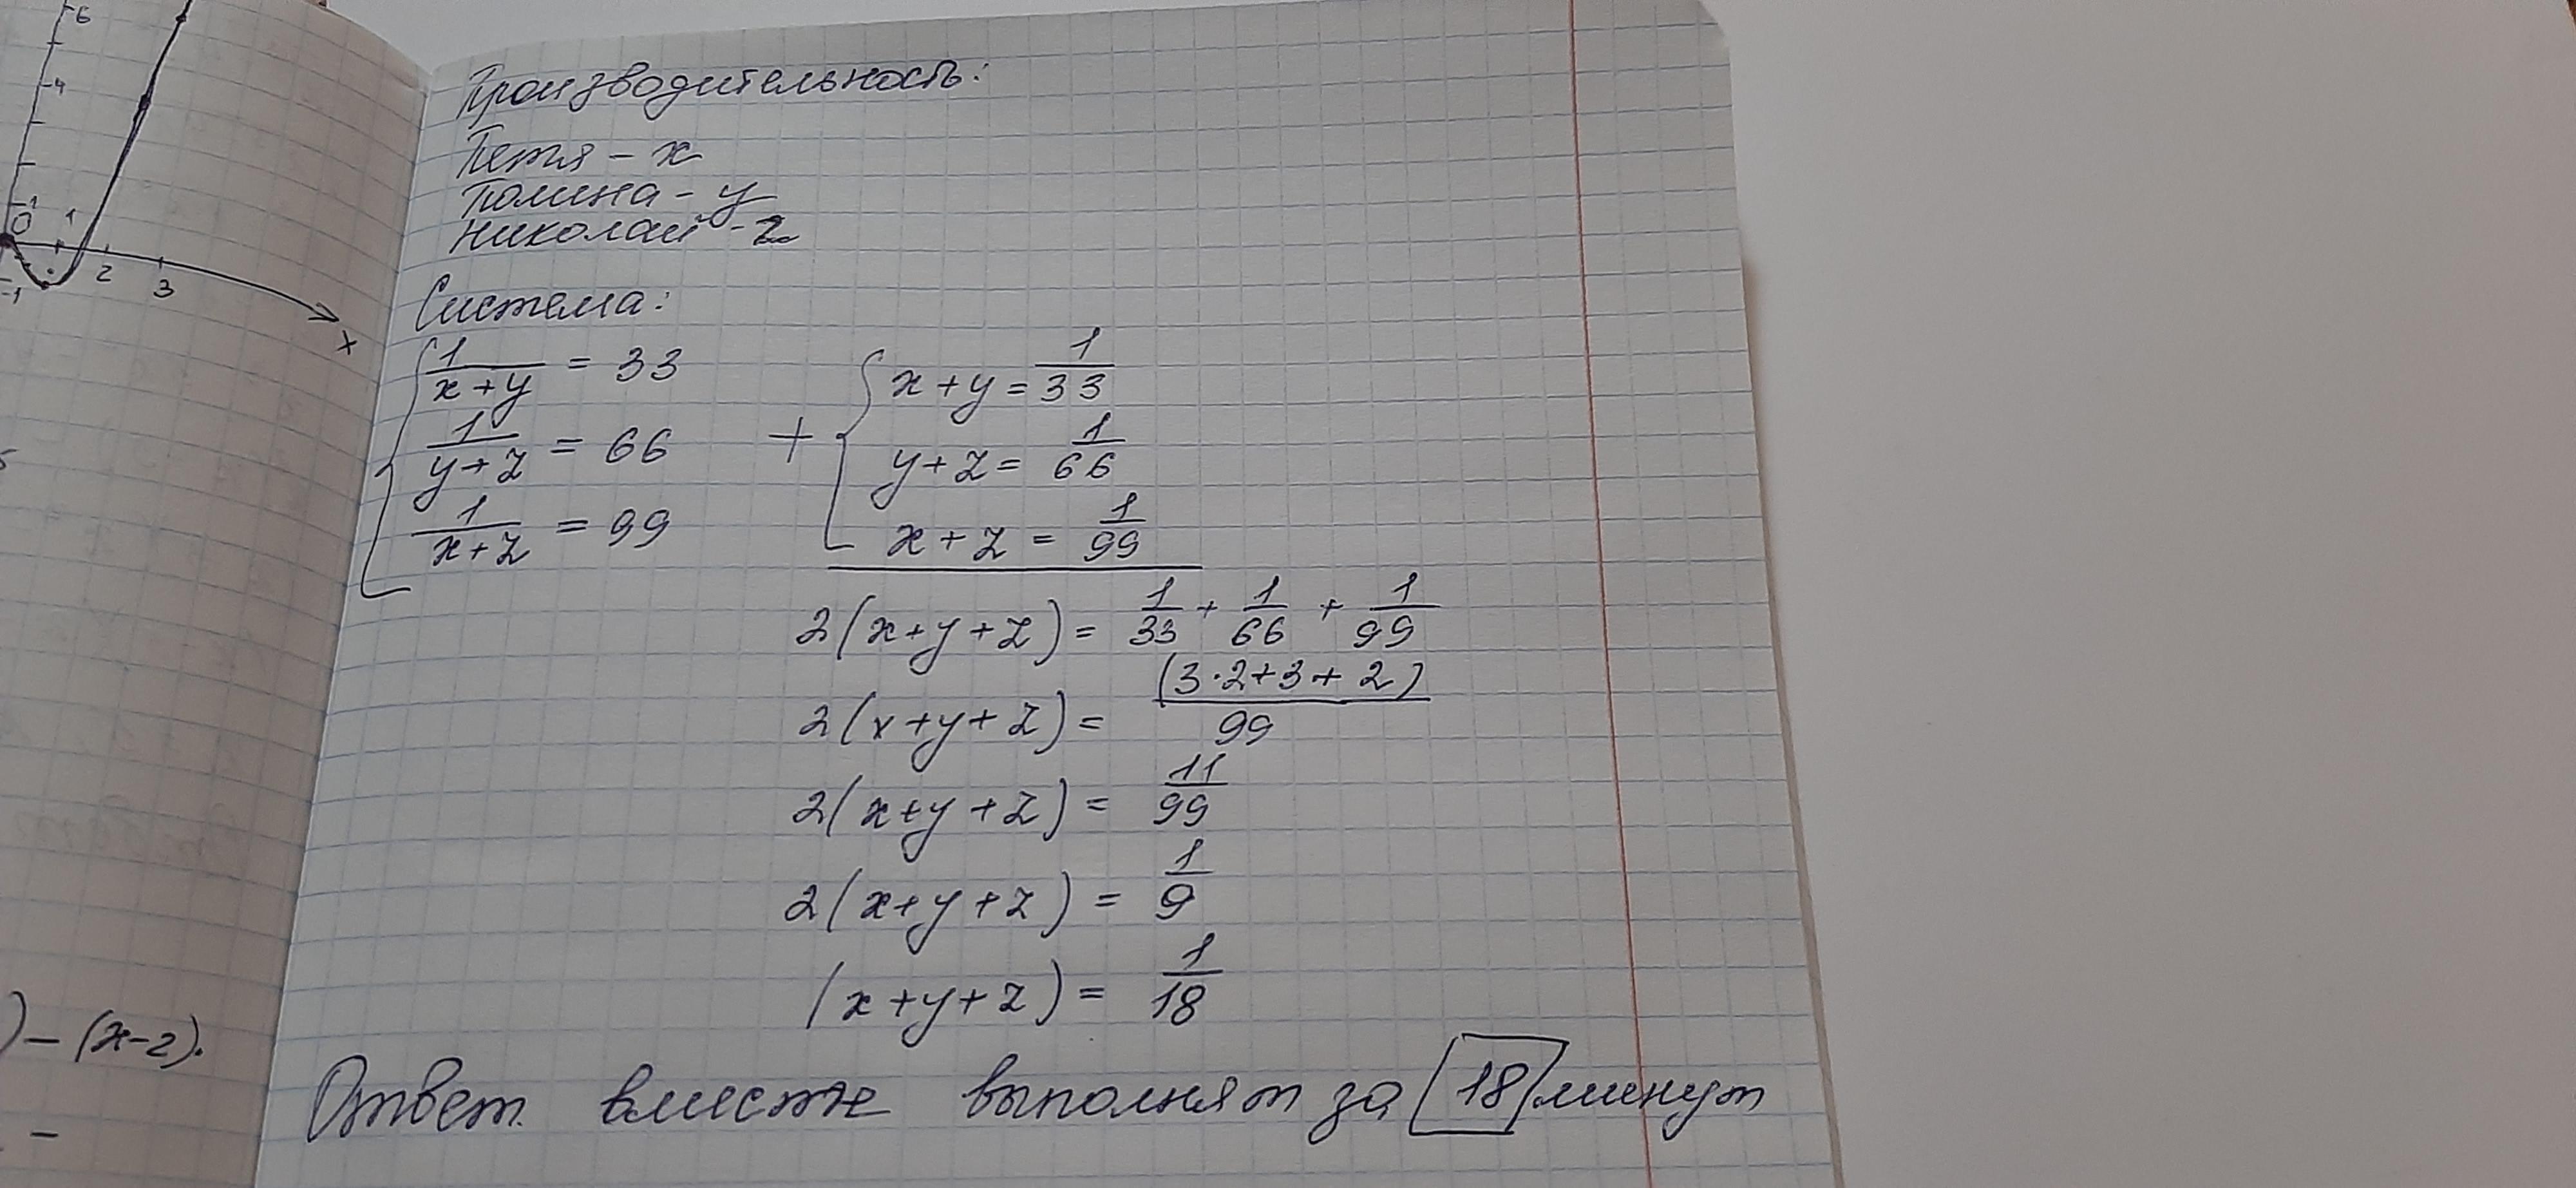 6
4
1
0 1
-1 2 3
x
) – (x-2).
–
Производительность:
Петя – x
Полина – y
Николай – z
Система:
1/(x+y) = 33
1/(y+z) = 66
1/(x+z) = 99
+
x+y = 1/33
y+z = 1/66
x+z = 1/99
2(x+y+z) = 1/33 + 1/66 + 1/99
2(x+y+z) = (3·2+3+2)/99
2(x+y+z) = 11/99
2(x+y+z) = 1/9
(x+y+z) = 1/18
Ответ. вместе выполнят за 18 минут